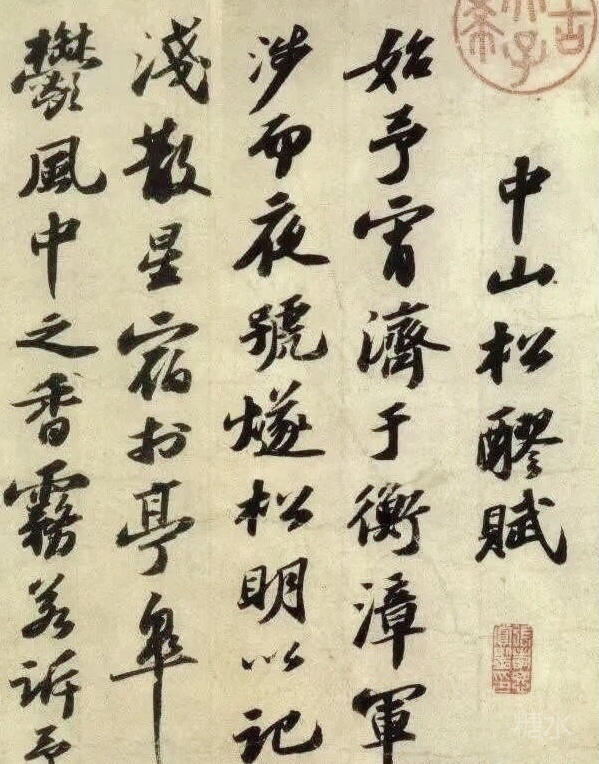 中山松醪賦
始予宵濟于衡漳軍
涉而夜號燧松明以記
淺散星宿於亭皋
鬱風中之香霧若訴予
糖水